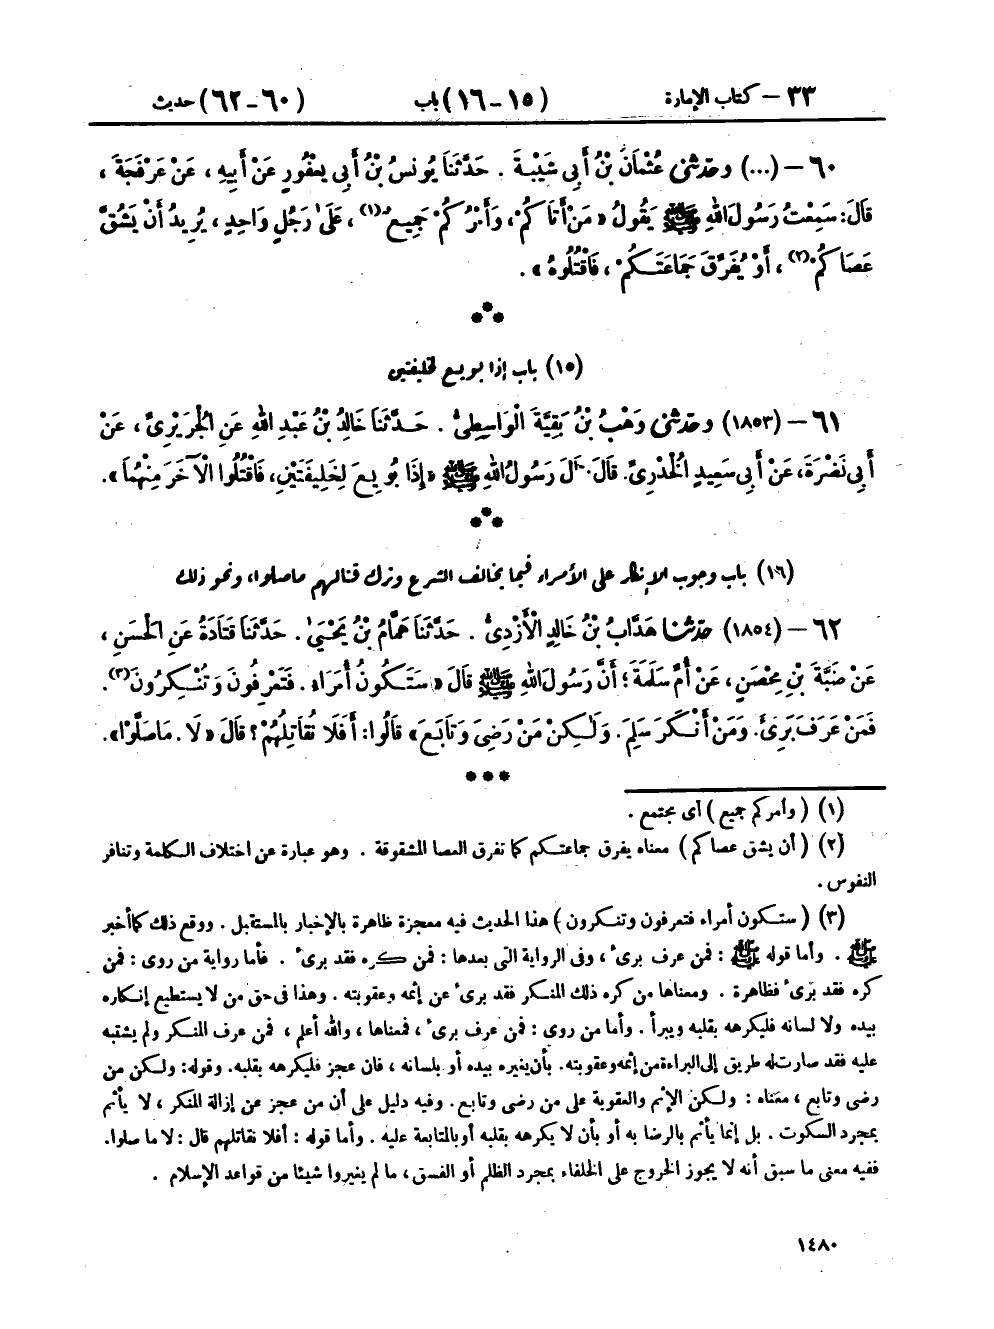 ٣٣ – كتاب الإمارة (١٥-١٦) باب (٦٠-٦٢) حديث
٦٠ – (...) وحدثني عُثْمَانُ بْنُ أَبِي شَيْبَةَ . حَدَّثَنَا يُونُسُ بْنُ أَبِي يَعْفُورٍ عَنْ أَبِيهِ ، عَنْ عَرْفَجَةَ ،
قَالَ: سَمِعْتُ رَسُولَ اللهِ ﷺ يَقُولُ « مَنْ أَتَاكُمْ، وَأَمْرُكُمْ جَمِيعٌ(١) ، عَلَىٰ رَجُلٍ وَاحِدٍ ، يُرِيدُ أَنْ يَشُقَّ
عَصَاكُمْ(٢) ، أَوْ يُفَرِّقَ جَمَاعَتَكُمْ ، فَاقْتُلُوهُ » .
(١٥) باب إذا بويع لخليفتين
٦١ – (١٨٥٣) وحدثني وَهْبُ بْنُ بَقِيَّةَ الْوَاسِطِيُّ . حَدَّثَنَا خَالِدُ بْنُ عَبْدِ اللهِ عَنِ الْجُرَيْرِيِّ ، عَنْ
أَبِي نَضْرَةَ، عَنْ أَبِي سَعِيدٍ الْخُدْرِيِّ. قَالَ: قَالَ رَسُولُ اللهِ ﷺ « إِذَا بُويِعَ لِخَلِيفَتَيْنِ، فَاقْتُلُوا الْآخَرَ مِنْهُمَا ».
(١٦) باب وجوب الإنكار على الأمراء فيما يخالف الشرع وترك قتالهم ماصلوا، ونحو ذلك
٦٢ – (١٨٥٤) حدثنا هَدَّابُ بْنُ خَالِدٍ الْأَزْدِيُّ . حَدَّثَنَا هَمَّامُ بْنُ يَحْيَىٰ . حَدَّثَنَا قَتَادَةُ عَنِ الْحَسَنِ ،
عَنْ ضَبَّةَ بْنِ مِحْصَنٍ ، عَنْ أُمِّ سَلَمَةَ ؛ أَنَّ رَسُولَ اللهِ ﷺ قَالَ « سَتَكُونُ أُمَرَاءُ . فَتَعْرِفُونَ وَتُنْكِرُونَ(٣).
فَمَنْ عَرَفَ بَرِئَ. وَمَنْ أَنْكَرَ سَلِمَ. وَلَٰكِنْ مَنْ رَضِيَ وَتَابَعَ » قَالُوا: أَفَلَا نُقَاتِلُهُمْ؟ قَالَ « لَا . مَا صَلَّوْا ».
(١) ( وأمركم جميع ) أى مجتمع .
(٢) ( أن يشق عصاكم ) معناه يفرق جماعتكم كما تفرق العصا المشقوقة . وهو عبارة عن اختلاف الكلمة وتنافر
النفوس .
(٣) ( ستكون أمراء فتعرفون وتنكرون ) هذا الحديث فيه معجزة ظاهرة بالإخبار بالمستقبل . ووقع ذلك كما أخبر
ﷺ . وأما قوله ﷺ : فمن عرف برئ ، وفى الرواية التى بعدها : فمن كره فقد برئ . فأما رواية من روى : فمن
كره فقد برئ فظاهرة . ومعناها من كره ذلك المنكر فقد برئ عن إثمه وعقوبته . وهذا فى حق من لا يستطيع إنكاره
بيده ولا لسانه فليكرهه بقلبه ويبرأ . وأما من روى : فمن عرف برئ ، فمعناها ، والله أعلم ، فمن عرف المنكر ولم يشتبه
عليه فقد صارت له طريق إلى البراءة من إثمه وعقوبته. بأن يغيره بيده أو بلسانه ، فان عجز فليكرهه بقلبه. وقوله: ولكن من
رضى وتابع ، معناه : ولكن الإثم والعقوبة على من رضى وتابع . وفيه دليل على أن من عجز عن إزالة المنكر ، لا يأثم
بمجرد السكوت . بل إنما يأثم بالرضا به أو بأن لا يكرهه بقلبه أو بالمتابعة عليه . وأما قوله : أفلا نقاتلهم قال : لا ما صلوا.
ففيه معنى ما سبق أنه لا يجوز الخروج على الخلفاء بمجرد الظلم أو الفسق ، ما لم يغيروا شيئا من قواعد الإسلام .
١٤٨٠